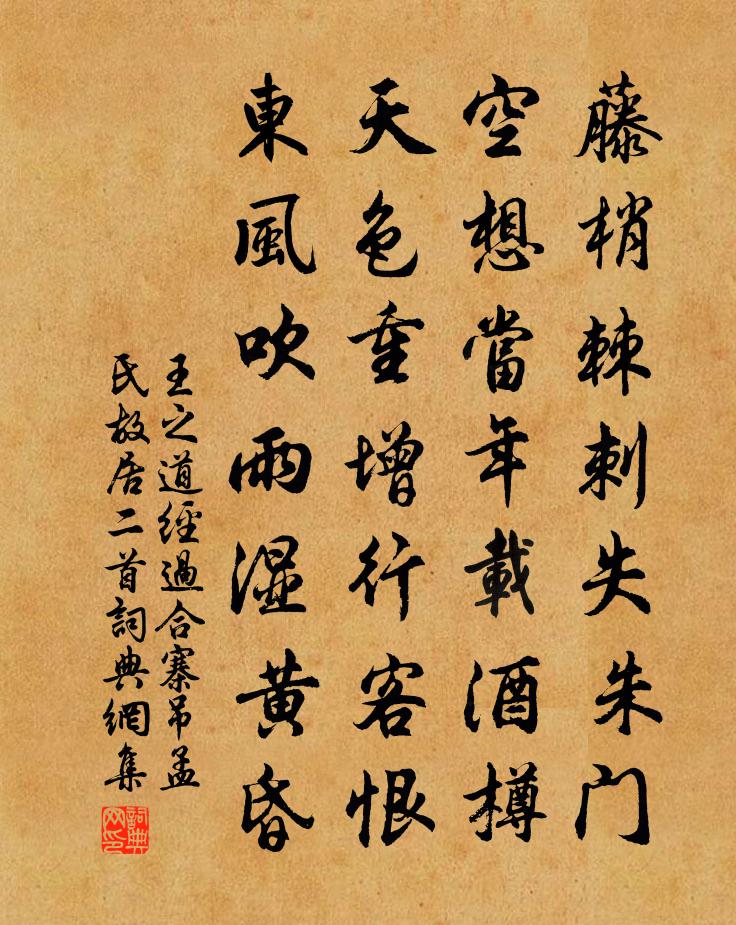 藤梢棘刺失朱门
空想當年載酒樽
天色重增行客恨
東風吹雨湿黄昏
王之道經過合寨吊孟
氏故居二首詞典網集
詞典网印